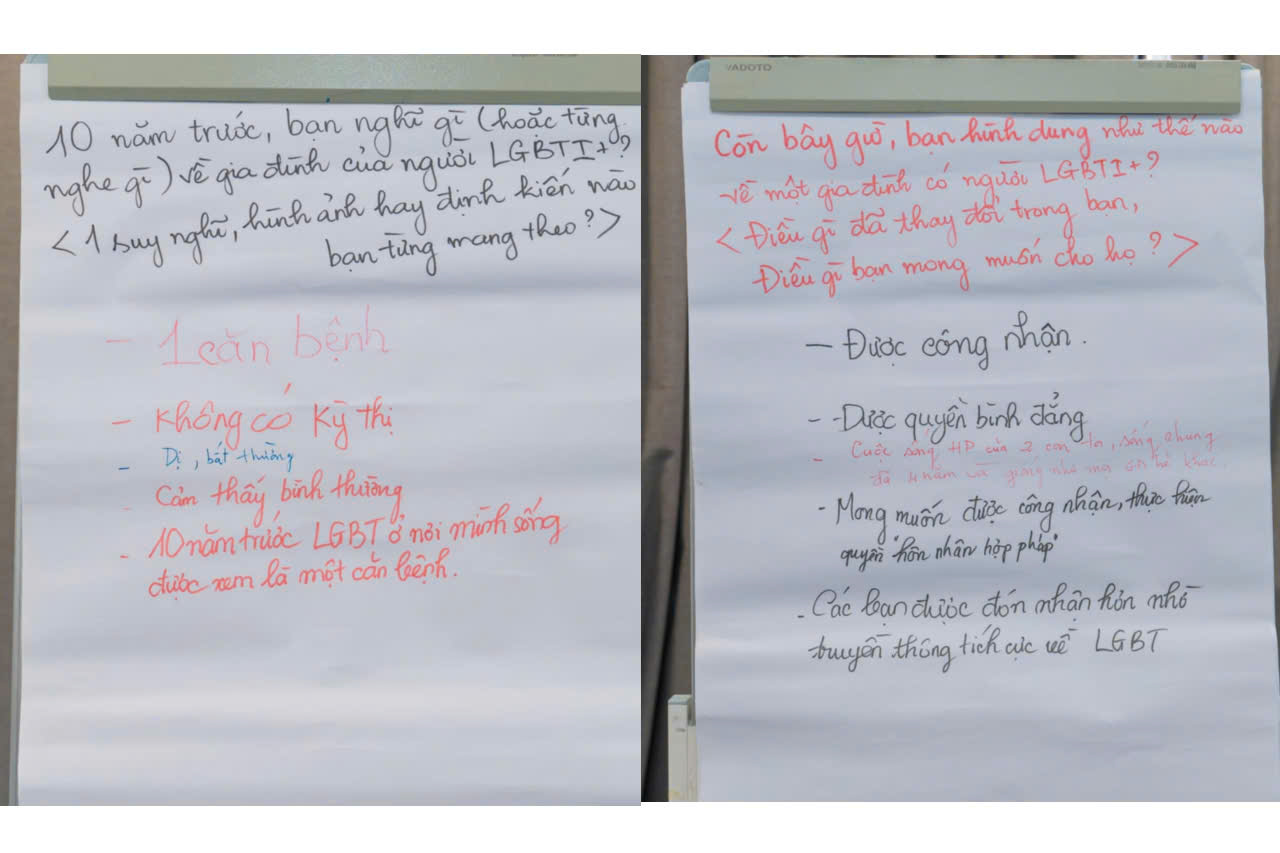 10 năm trước, bạn nghĩ gì (hoặc từng
nghe gì) về gia đình của người LGBTI+?
<1 suy nghĩ, hình ảnh hay định kiến nào
bạn từng mang theo?>
- 1 căn bệnh
- Không có kỳ thị
- Dị, bất thường
- Cảm thấy bình thường
- 10 năm trước LGBT ở nơi mình sống
được xem là một căn bệnh.
VADOTO
Còn bây giờ, bạn hình dung như thế nào
về một gia đình có người LGBTI+?
<Điều gì đã thay đổi trong bạn,
Điều gì bạn mong muốn cho họ?>
- Được công nhận.
- Được quyền bình đẳng
- Cuộc sống HP của 2 con, sống chung
đã 4 năm và giống như mọi khác.
- Mong muốn được công nhận, thực hiện
quyền "hôn nhân hợp pháp"
- Các bạn được đón nhận hơn nhờ
truyền thông tích cực về LGBT